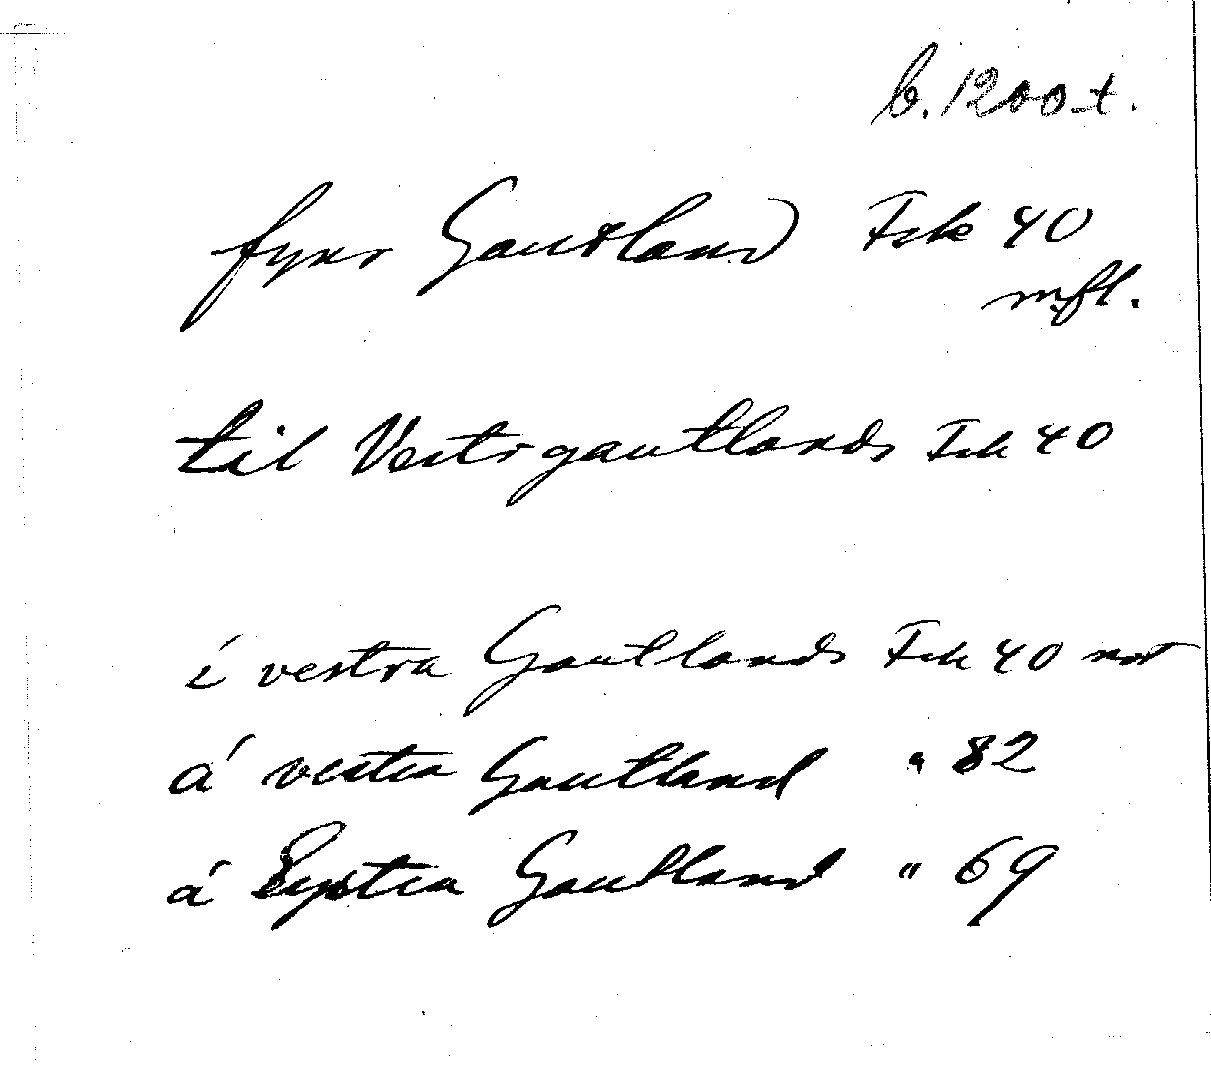 b. 1200-t.
fyrir Gautland Fsk 40
mfl.
til Vestrgautlands Fsk 40
í vestra Gautlands Fsk 40 not
á vestra Gautland " 82
á Eystra Gautland " 69